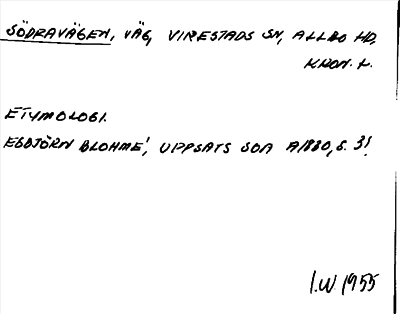 SÖDRAVÄGEN, VÄG, VIRESTADS SN, ALLBO HD,
KRON. L.
ETYMOLOGI.
ESBJÖRN BLOHMÉ, UPPSATS SOA A1880, S. 31.
I.W 1955